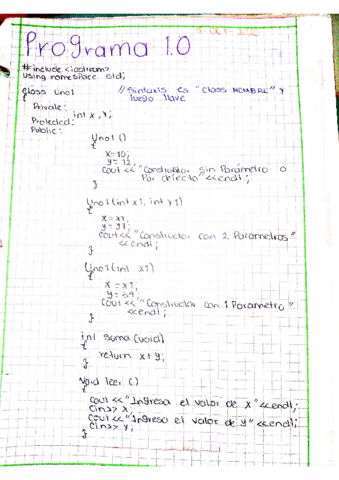 Programa 1.0
#include <iostream>
Using namespace std;
Class Uno1 //Sintaxis es "Class NOMBRE" y
{ luego llave
Private:
int x, y;
Protected:
Public:
Uno1 ()
{
x=10;
y= 12;
Cout << "Constructor Sin Parámetro o
Por defecto" <<endl;
}
Uno1 (int x1, int y1)
{
x = x1;
y = y1;
Cout << "Constructor con 2 Parametros"
<<endl;
}
Uno1 (int x1)
{
x = x1;
y = 54;
Cout << "Constructor con 1 Parametro"
<<endl;
}
int suma (void)
{
return x+y;
}
Void leer ()
{
Cout << "Ingresa el valor de x" <<endl;
Cin>> x;
Cout << "Ingresa el valor de y" <<endl;
Cin>> y;
}